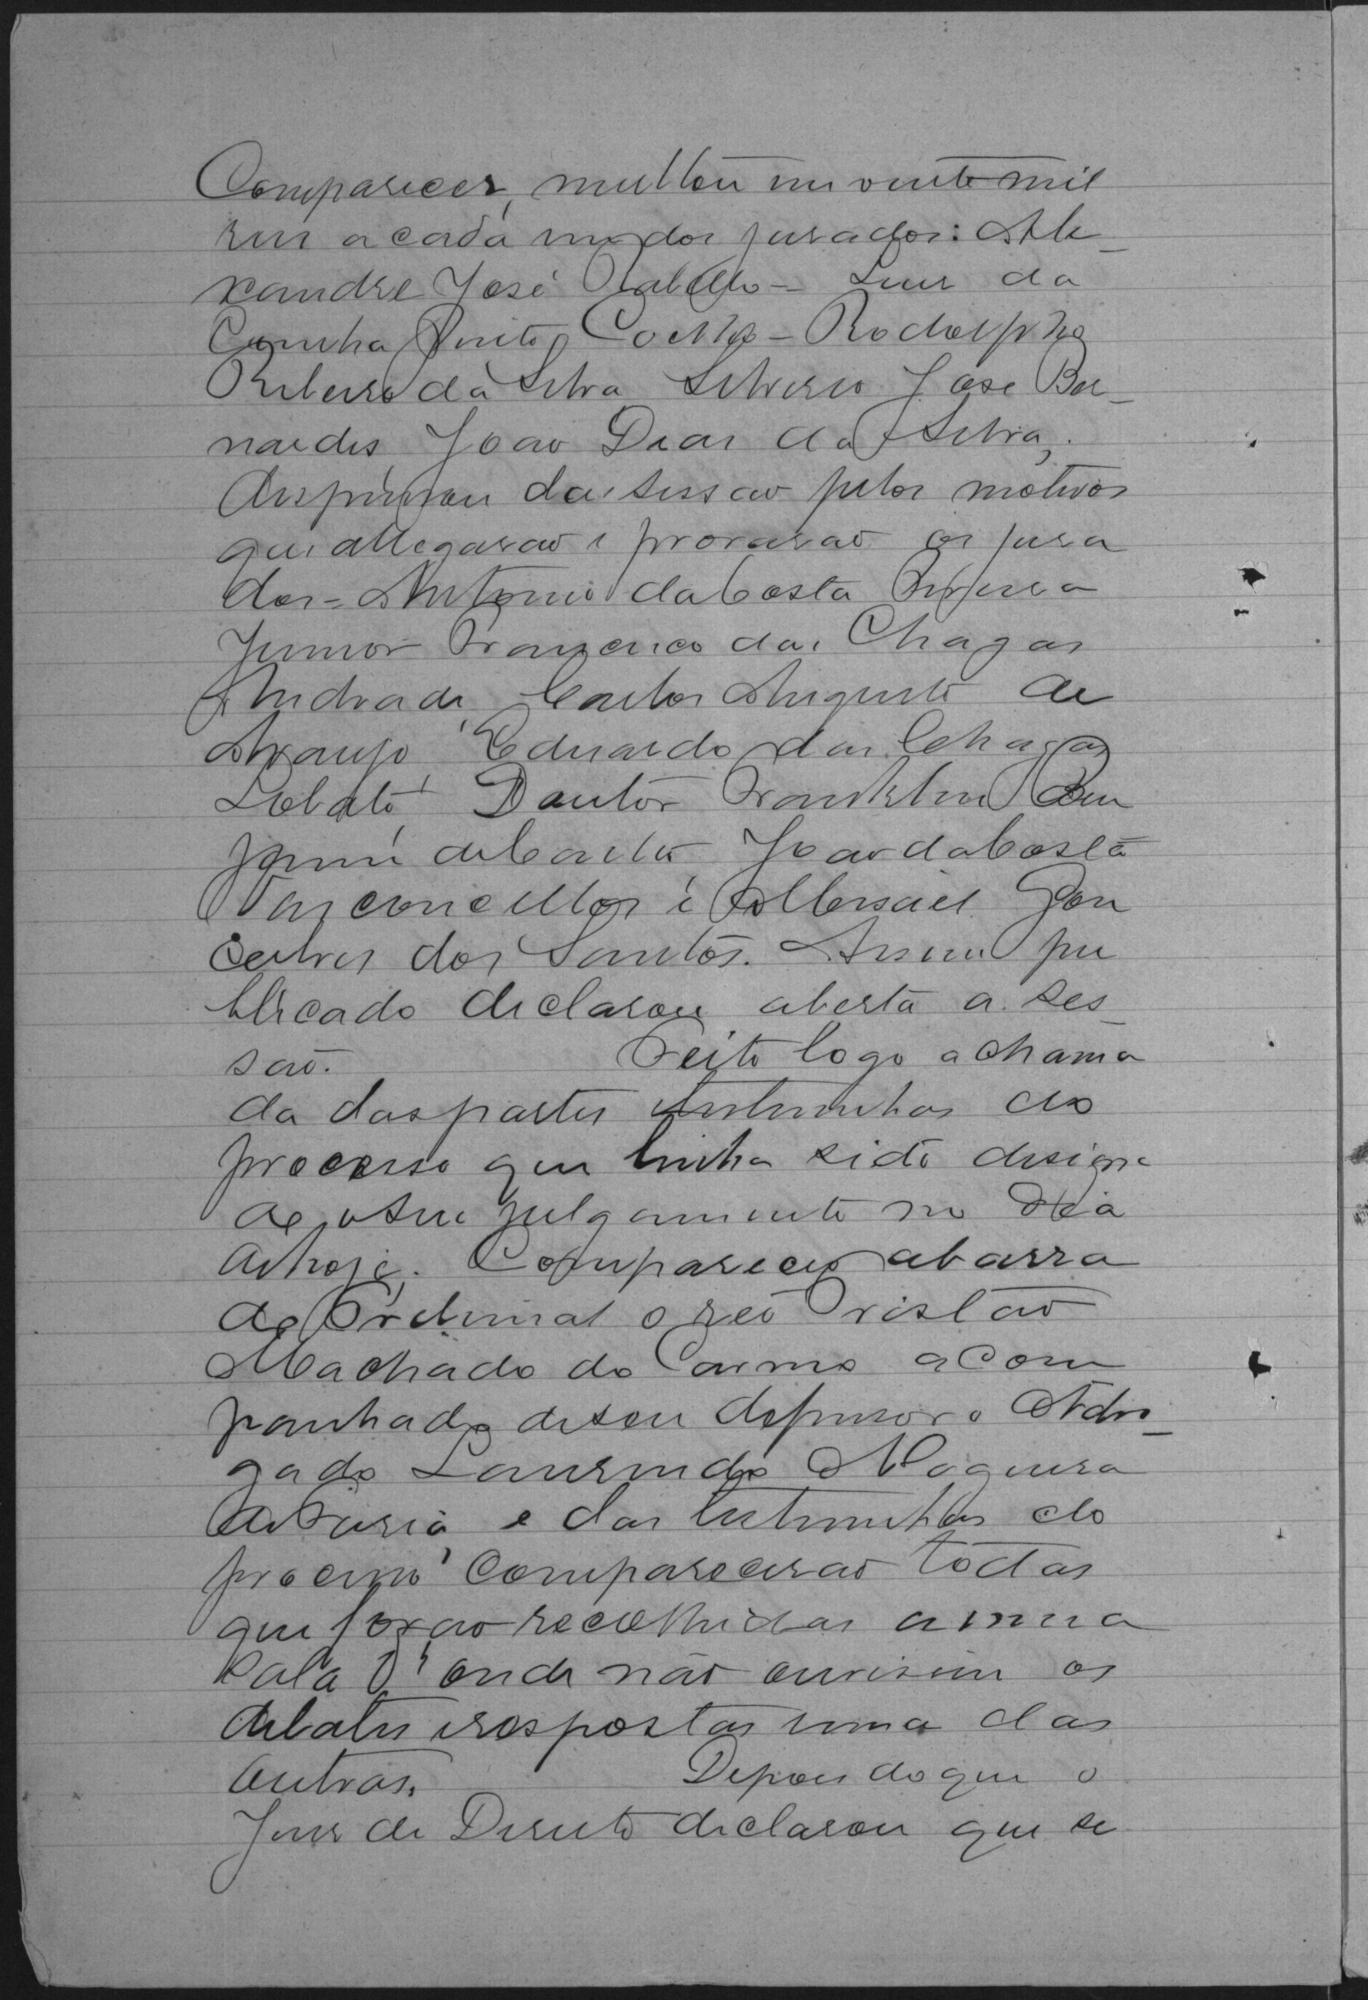 Comparecer, multou em vinte mil
reis a cada um dos jurados: Ale-
xandre José Rabello - Luis da
Cunha Pinto Coelho - Rodolpho
Ribeiro da Silva Silverio José Ber-
nardes João Dias da Silva,
dispensou da sessão pelos motivos
que allegarão e provarão os jura
dos = Antonio da Costa Pereira
Junior Francisco das Chagas
Andrade, Carlos Augusto de
Araujo, Eduardo das Chagas
Lobato, Doutor Franklin Ben
jamim de Castro João da Costa
Vasconcellos e Missael Gon
calves dos Santos. Assim pu
blicado declarou aberta a ses
são. Feito logo a chama
da das partes testemunhas do
processo que tinha sido designa
do o seu julgamento no dia
de hoje. Compareceu a barra
do Tribunal o reo Tristão
Machado do Carmo acom
panhado de seu defensor o Advo-
gado Laurindo Nogueira
de Faria, e das testemunhas do
processo comparecerão todas
que forão recolhidas a uma
sala d'onde não ouvissem os
debates e respostas uma das
outras. Depois do que o
Juis de Direito declarou que se